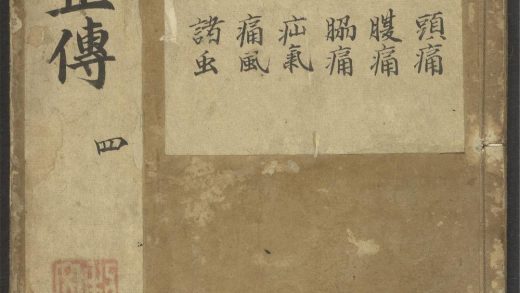 頭痛
腹痛
脇痛
疝氣
痛風
諸虫
正傳
四